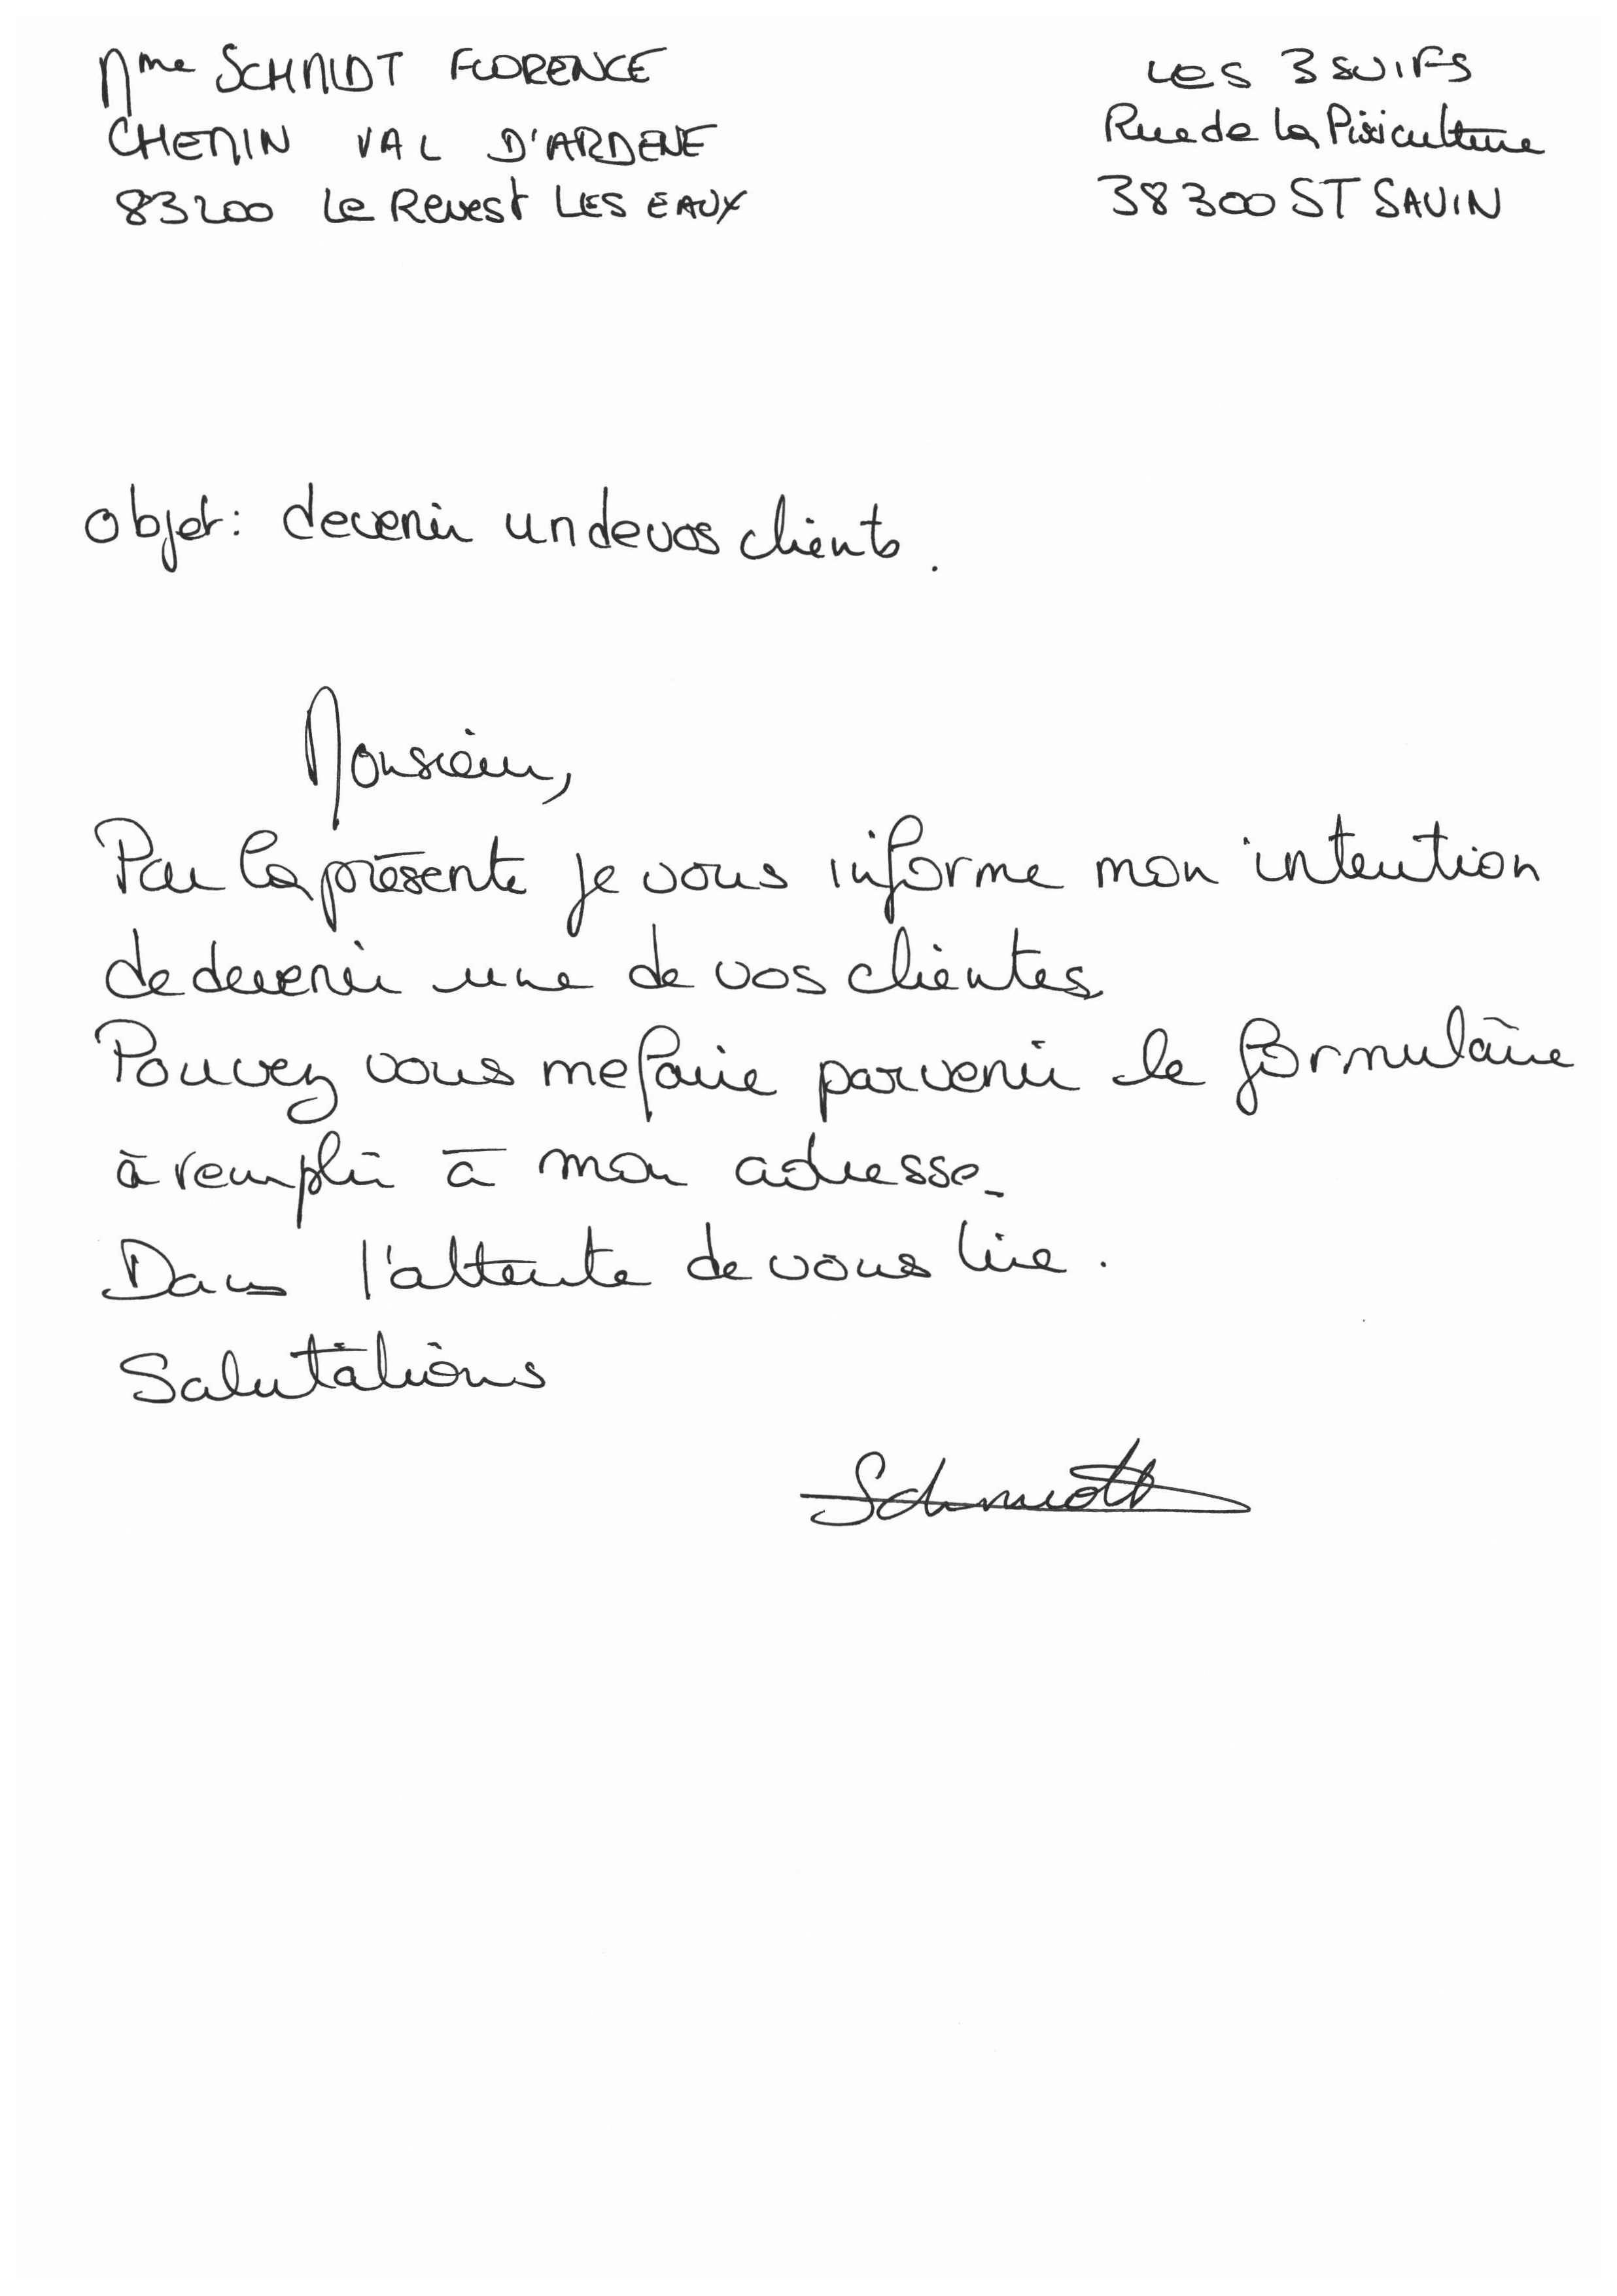 Mme SCHMIDT FLORENCE
CHEMIN VAL D'ARDENE
83200 Le Revest LES EAUX
LES 3 SUIFS
Rue de la Pisiculture
38300 ST SAVIN
Objet : devenir un de vos clients.
Monsieur,
Par la présente je vous informe mon intention
de devenir une de vos clientes
Pouvez vous me faire parvenir le formulaire
à remplir à mon adresse.
Dans l'attente de vous lire.
Salutations
Schmidt